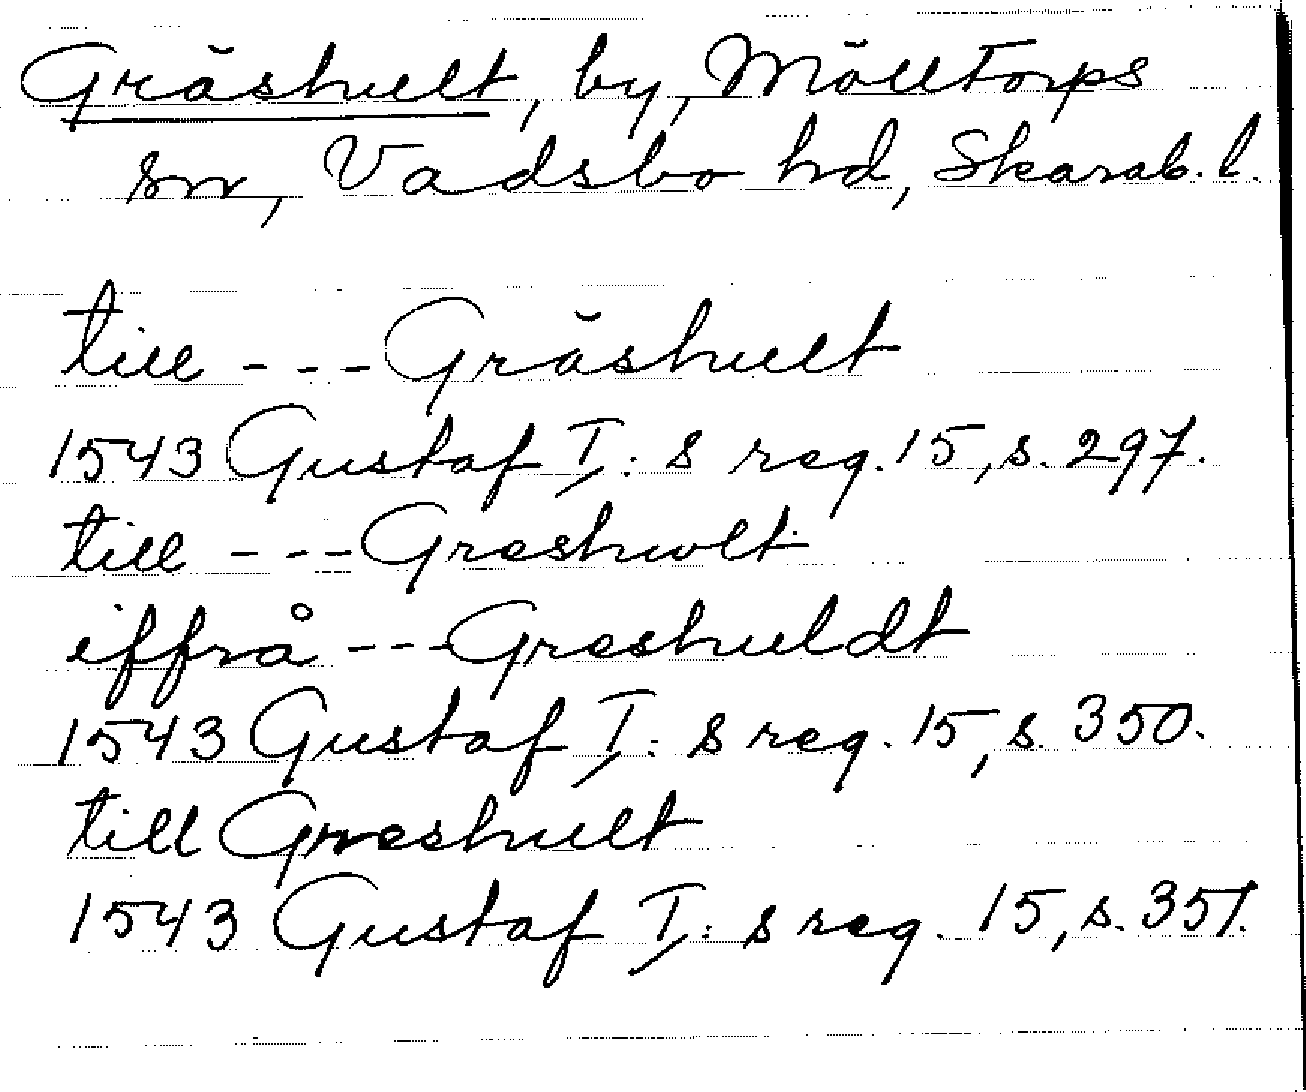 Gräshult, by, Mölltorps
sn, Vadsbo hd, Skarab. l.
till --- Gräshult
1543 Gustaf I: s reg. 15, s. 297.
till --- Greshwlt
iffrå --- Greshuldt
1543 Gustaf I: s reg. 15, s. 350.
till Greshult
1543 Gustaf I: s reg. 15, s. 351.